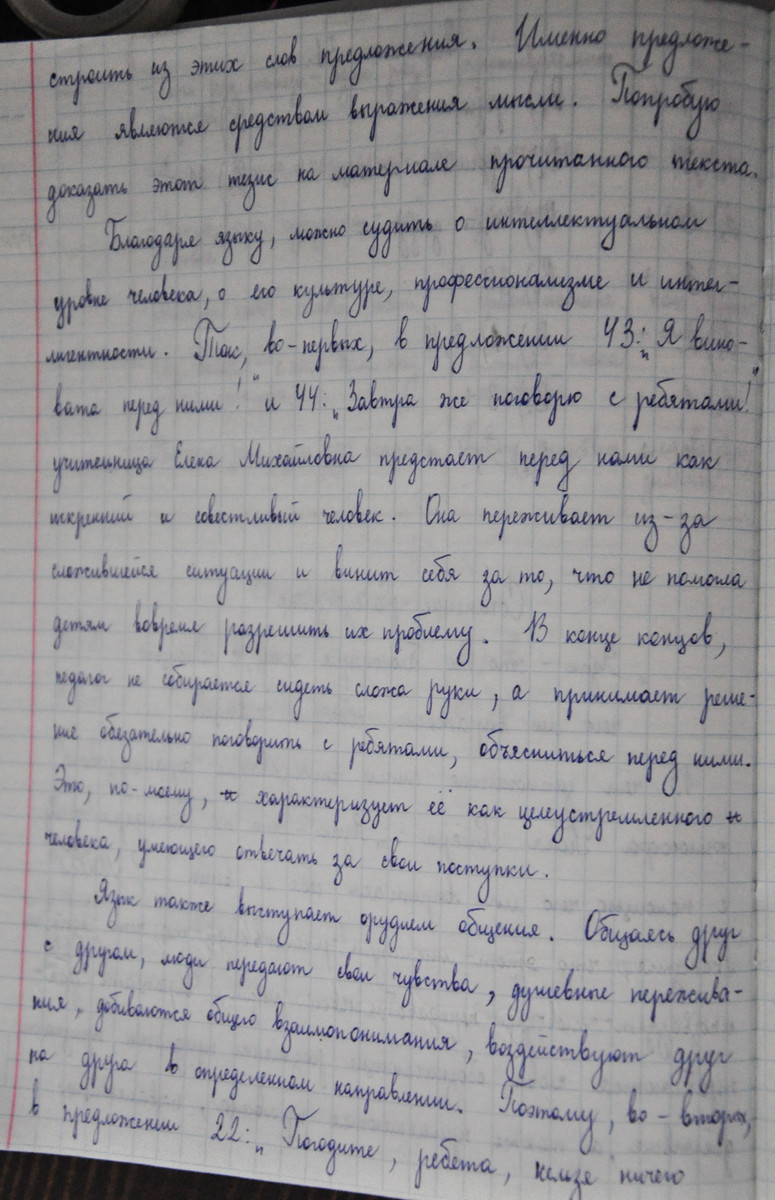 строить из этих слов предложения. Именно предложе-
ния являются средством выражения мысли. Попробую
доказать этот тезис на материале прочитанного текста.
Благодаря языку, можно судить о интеллектуальном
уровне человека, о его культуре, профессионализме и интел-
лигентности. Так, во-первых, в предложении 43: „Я вино-
вата перед ними!“ и 44: „Завтра же поговорю с ребятами!“
учительница Елена Михайловна предстает перед нами как
искренний и совестливый человек. Она переживает из-за
сложившейся ситуации и винит себя за то, что не помогла
детям вовремя разрешить их проблему. В конце концов,
педагог не собирается сидеть сложа руки, а принимает реше-
ние обязательно поговорить с ребятами, объясниться перед ними.
Это, по-моему, характеризует её как целеустремленного
человека, умеющего отвечать за свои поступки.
Язык также выступает орудием общения. Общаясь друг
с другом, люди передают свои чувства, душевные пережива-
ния, добиваются общего взаимопонимания, воздействуют друг
на друга в определенном направлении. Поэтому, во-вторых,
в предложении 22: „Погодите, ребята, нельзя ничего